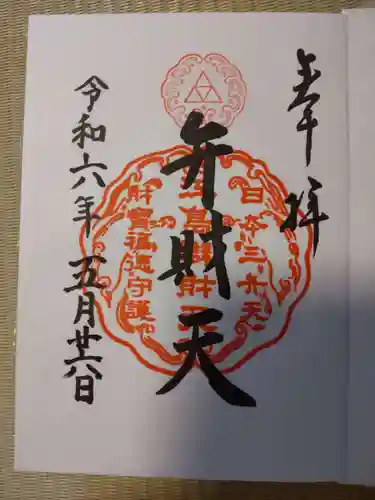 奉拝
日本三弁天
江島弁財天
財寶福徳守護
弁財天
令和六年五月廿六日